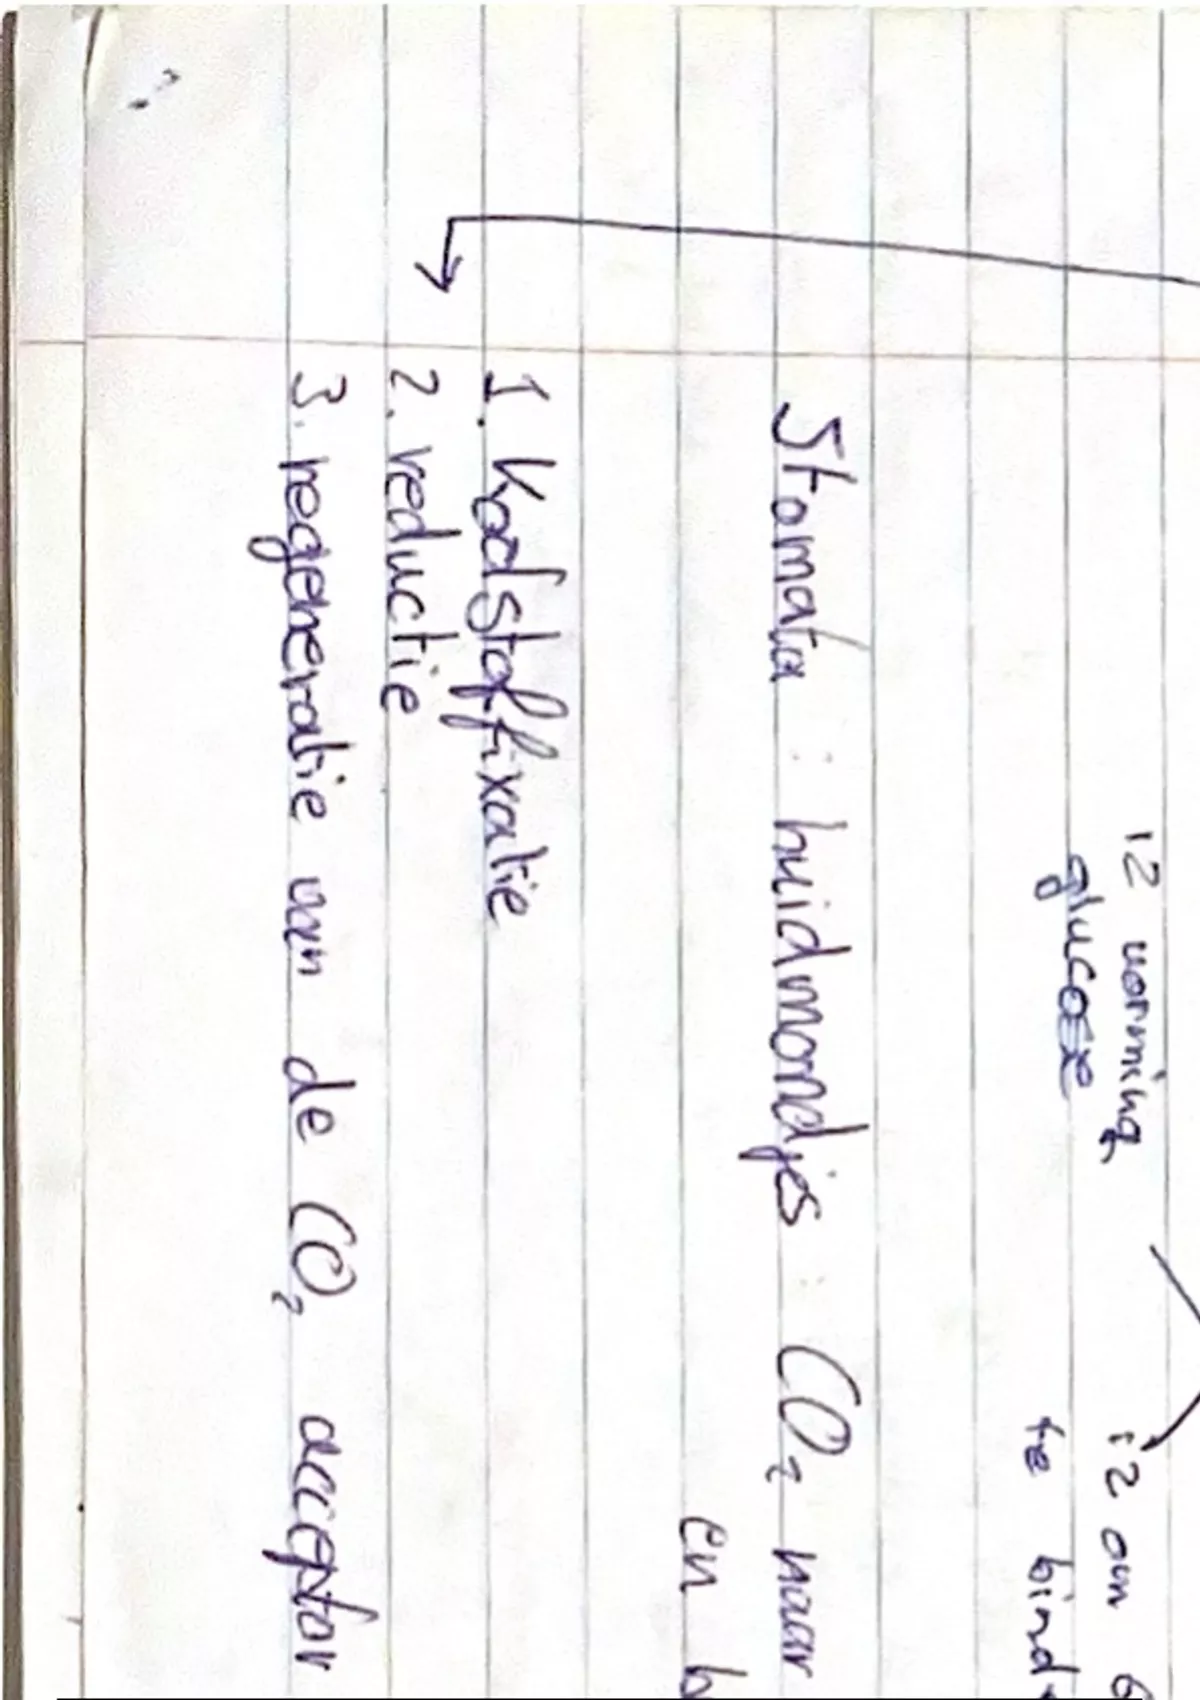 12 vorming
glucose
12 om 6
te bind
Stomata : huidmondjes : CO₂ naar
en b
1. Koolstoffixatie
2. reductie
3. regeneratie van de CO₂ acceptor